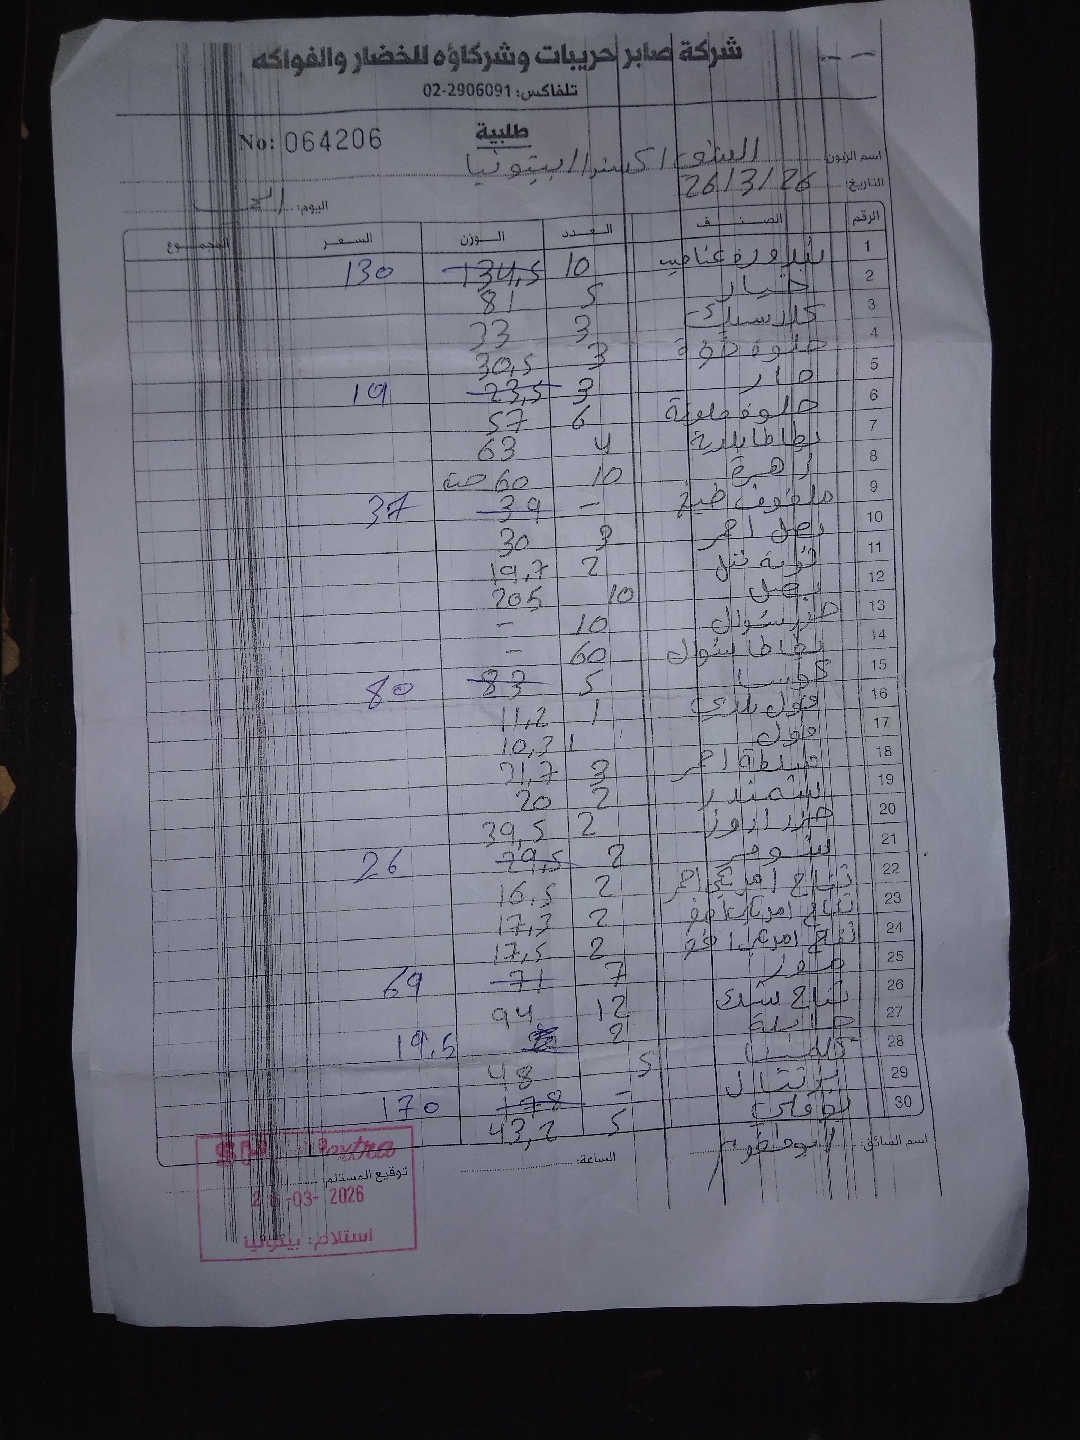 شركة صابر حريبات وشركاؤه للخضار والفواكه
تلفاكس: 02-2906091
طلبية
No: 064206
اسم الزبون: السنفي اكسترا / بيتونيا
التاريخ: 26/3/26
اليوم:
الرقم الصنف العدد الوزن السعر المجموع
1 بندورة عناقيد 10 134,5 130
2 خيار 5 81
3 كلاسيك 3 33
4 حلوة 3 30,5
5 حار 3 23,5 19
6 حلوة ملونة 6 57
7 بطاطا بلدية 4 63
8 زهرة 10 60 حبة
9 ملفوف طبيخ - 39 37
10 بصل احمر 3 30
11 ثومة تنل 2 19,7
12 بصل 10 205
13 جزر شوال 10 -
14 بطاطا شوال 60 -
15 كوسا 5 83 80
16 فول بلدي 1 11,2
17 فول 1 10,3
18 احمر 3 21,7
19 شمندر 2 20
20 جزر اروز 2 39,5
21 شومر 2 29,5 26
22 تفاح امريكي احمر 2 16,5
23 تفاح امريكي 2 17,3
24 تفاح امريكي 2 17,5
25 موز 7 71 69
26 تفاح ستارك 12 94
27 2 19.5
28 كلمنتينا 5 48
29 برتقال - 178 170
30 بوملي 5 43,2
اسم السائق:
الساعة:
توقيع المستلم:
extra
-03- 2026
استلام: بيتونيا